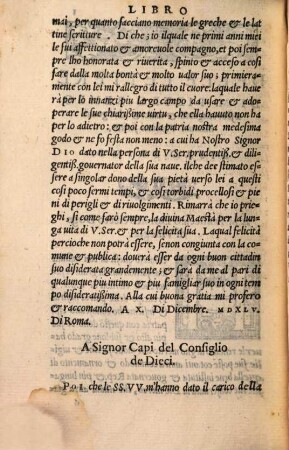 LIBRO
mai, per quanto facciano memoria le greche & le la
tine scritture. Di che; io ilquale ne primi anni miei
le fui affettionato & amoreuole compagno, et poi sempre
lho honorata & riuerita, spinto & acceso a cosi
fare dalla molta bontà & molto ualor suo; primieramente
con lei mi rallegro di tutto il cuore. laquale haue
rà per lo innanzi piu largo campo da usare & adoperare
le sue chiarissime uirtu, che ella hauuto non ha
per lo adietro: & poi con la patria nostra medesima
godo & ne fo festa non meno: a cui ha Nostro Signor
DIO dato nella persona di V.Ser.prudentiss. &
diligentiss.gouernator della sua naue. ilche dee stimato es
sere a singolar dono della sua pietà uerso lei a questi
cosi poco fermi tempi, & cosi torbidi procellosi & pie
ni di perigli & di riuolgimenti. Rimarrà che io prie
ghi, si come farò sempre, la diuina Maestà per la lun
ga uita di V.Ser.& per la felicita sua. Laqual felicità
percioche non potrà essere, senon congiunta con la co
mune & publica: douerà esser da ogni buon cittadin
suo disiderata grandemente; & sarà da me al pari di
qualunque piu intimo & piu famigliar suo in ogni tem
po disideratissima. Alla cui buona gratia mi profero
& raccomando. A X. Di Decembre. MDXLV.
Di Roma.
A Signor Capi del Consiglio
de Dieci.
POI che le SS.VV.m'hanno dato il carico della